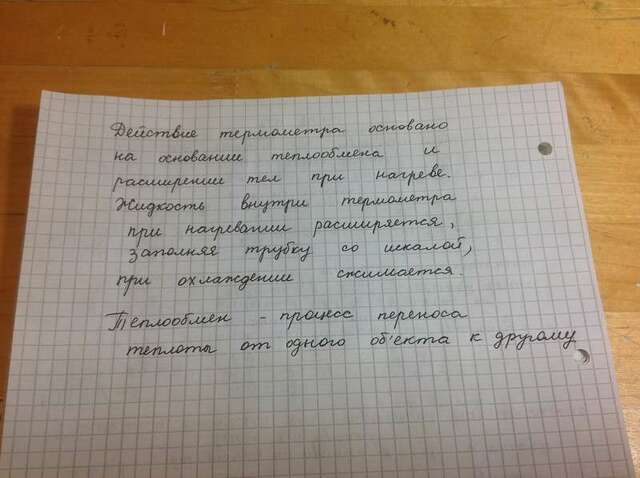 Действие термометра основано
на основании теплообмена и
расширении тел при нагреве.
Жидкость внутри термометра
при нагревании расширяется,
заполняя трубку со шкалой,
при охлаждении сжимается.
Теплообмен - процесс переноса
теплоты от одного об'екта к другому